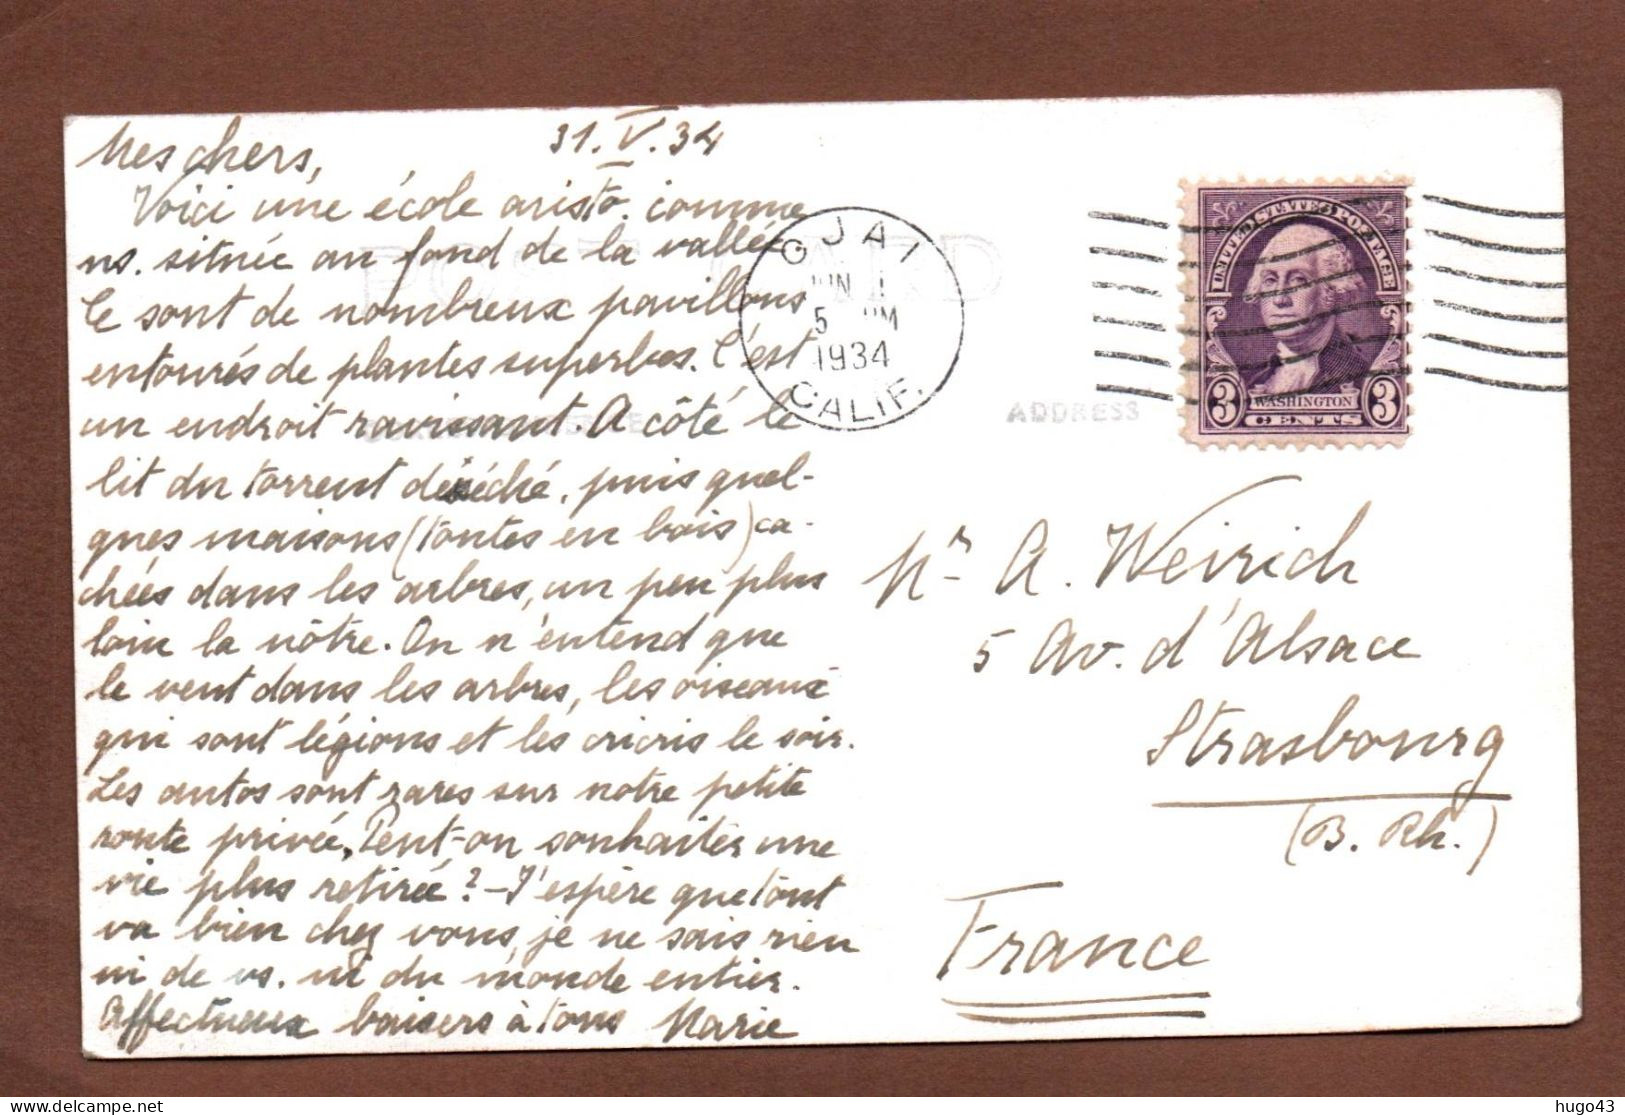 31. V. 34
Mes chers,
Voici une école aristo. comme
ns. située au fond de la vallée
Ce sont de nombreux pavillons
entourés de plantes superbes. C'est
un endroit ravissant. A côté le
lit du torrent déséché, puis quel-
ques maisons (toutes en bois) ca-
chées dans les arbres, un peu plus
loin la nôtre. On n'entend que
le vent dans les arbres, les oiseaux
qui sont légions et les cricris le soir.
Les autos sont rares sur notre petite
route privée. Peut-on souhaiter une
vie plus retirée? - J'espère que tout
va bien chez vous, je ne sais rien
ni de vs. ni du monde entier.
Affectueux baisers à tous Marie
POST CARD
ADDRESS
OJAI
JUN 1
5 PM
1934
CALIF.
UNITED STATES POSTAGE
3 WASHINGTON 3
CENTS
Mr A. Weirich
5 Av. d'Alsace
Strasbourg
(B. Rh.)
France
hugo43